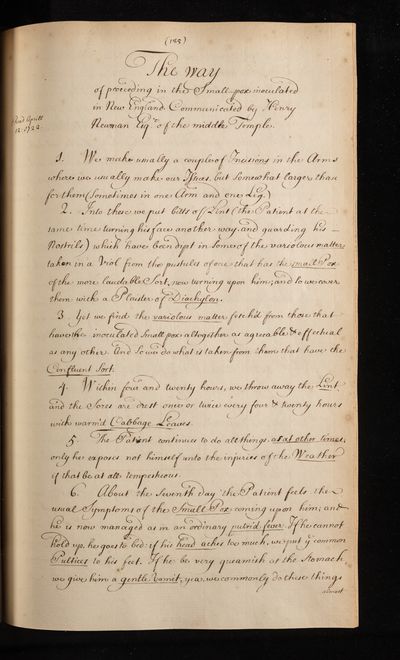 (185)
The way
of proceeding in the Small-pox inoculated
in New England. Communicated by Henry
Newman Esqr. of the middle Temple.
Read Aprill
12. 1722.
1. We make usually a couple of Incisions in the Arms
where we usually make our Issues, but somewhat larger than
for them (Sometimes in one Arm and one Leg.)
2. Into these we put bitts of Lint (the Patient at the
same time turning his face another way and guarding his
Nostrils) which have been dipt in some of the variolous matter
taken in a Viol from the pustules of one that has the small Pox
of the more laudable Sort, now turning upon him; and so we cover
them with a Plaister of Diachylon.
3. Yet we find the variolous matter fetch'd from those that
have the inoculated Small pox altogether as agreable & effectual
as any other. And so we do what is taken from them that have the
Confluent Sort.
4. Within four and twenty hours, we throw away the Lint
and the Sores are drest once or twice every four & twenty hours
with warm'd Cabbage Leaves.
5. The Patient continues to do all things as at other times,
only he exposes not himself unto the injuries of the Weather
if that be at all tempestuous.
6. About the Seventh day the Patient feels the
usual Symptoms of the Small Pox coming upon him; and
he is now managed as in an ordinary putrid fever. If he cannot
hold up, he goes to bed: if his head aches too much, we put ye common
Pultices to his feet. If he be very queamish at the Stomach,
we give him a gentle Vomit; yea, we commonly do these things
almost